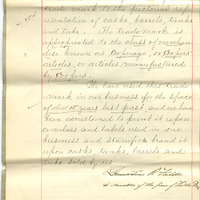 trade mark to the pictorial rep-
resentation of casks, barrels, tanks
and tubs. The trade mark is
appropriated to the class of merchan-
dise known as Cooperage, or Coopers
articles, or articles manufactured
by Coopers.
We have used this trade
mark in our business for the space
of about years last past, and we have
been accustomed to print it upon
circulars and labels used in our
business and stamp or brand it
upon casks, tanks, barrels and
tubs sold by us.
a member of the firm of